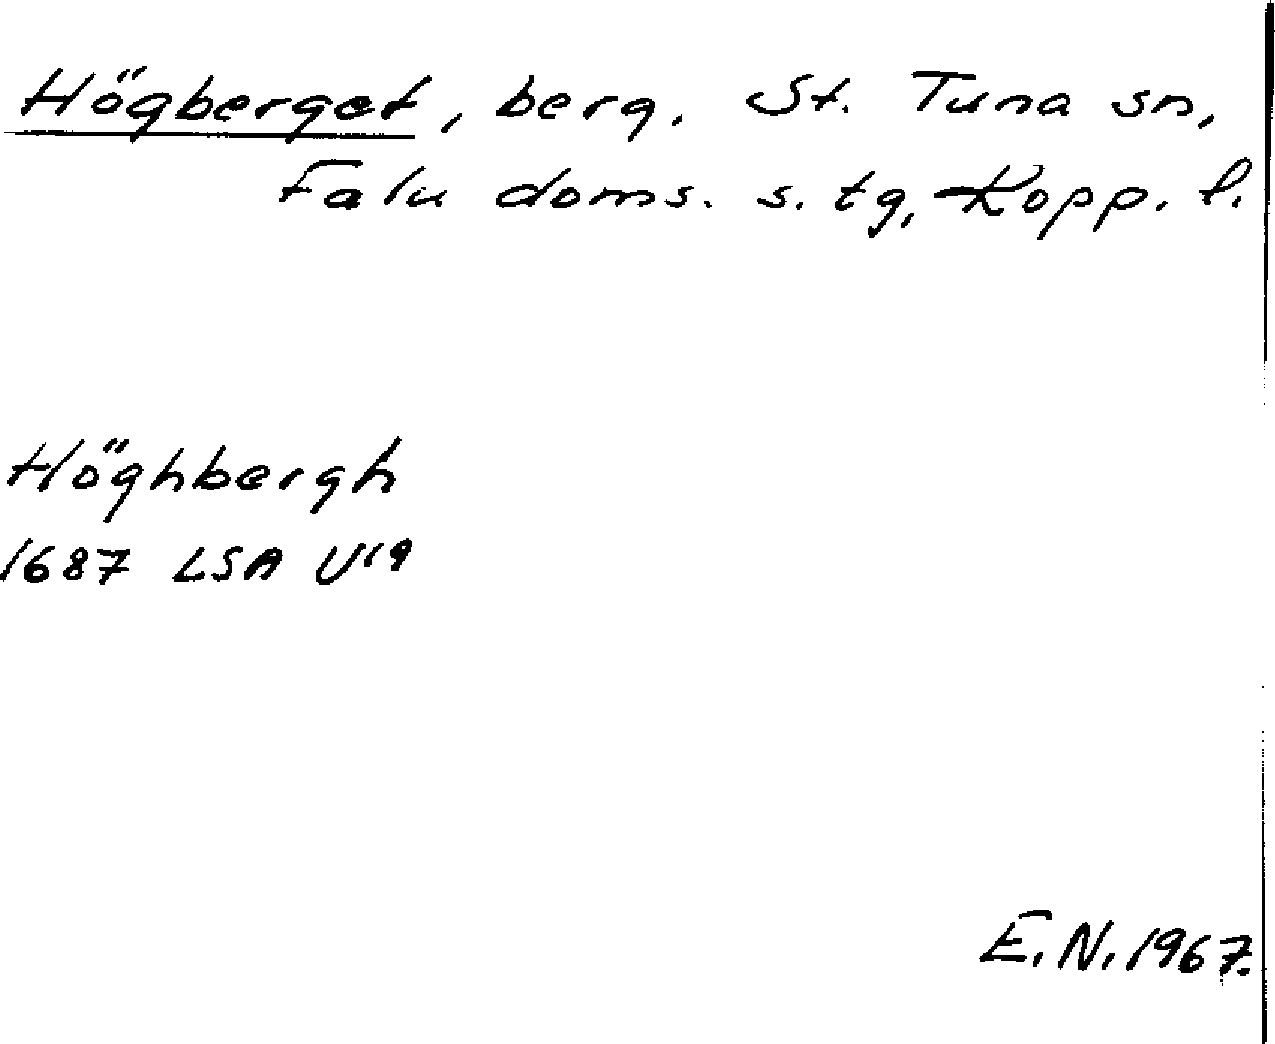 Högberget, berg. St. Tuna sn,
Falu doms. s. tg, Kopp. l.
Höghbergh
1687 LSA U19
E.N. 1967.